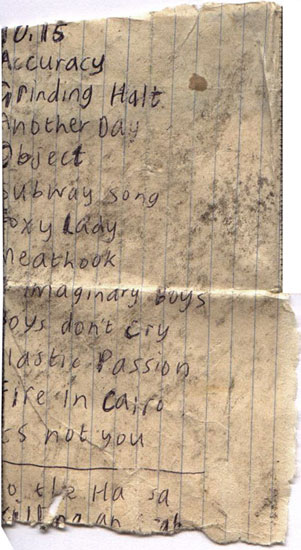 10.15
Accuracy
Grinding Halt
Another Day
Object
Subway song
Foxy Lady
Meathook
imaginary boys
Boys don't cry
Plastic Passion
Fire in Cairo
its not you
Do the
Killing an